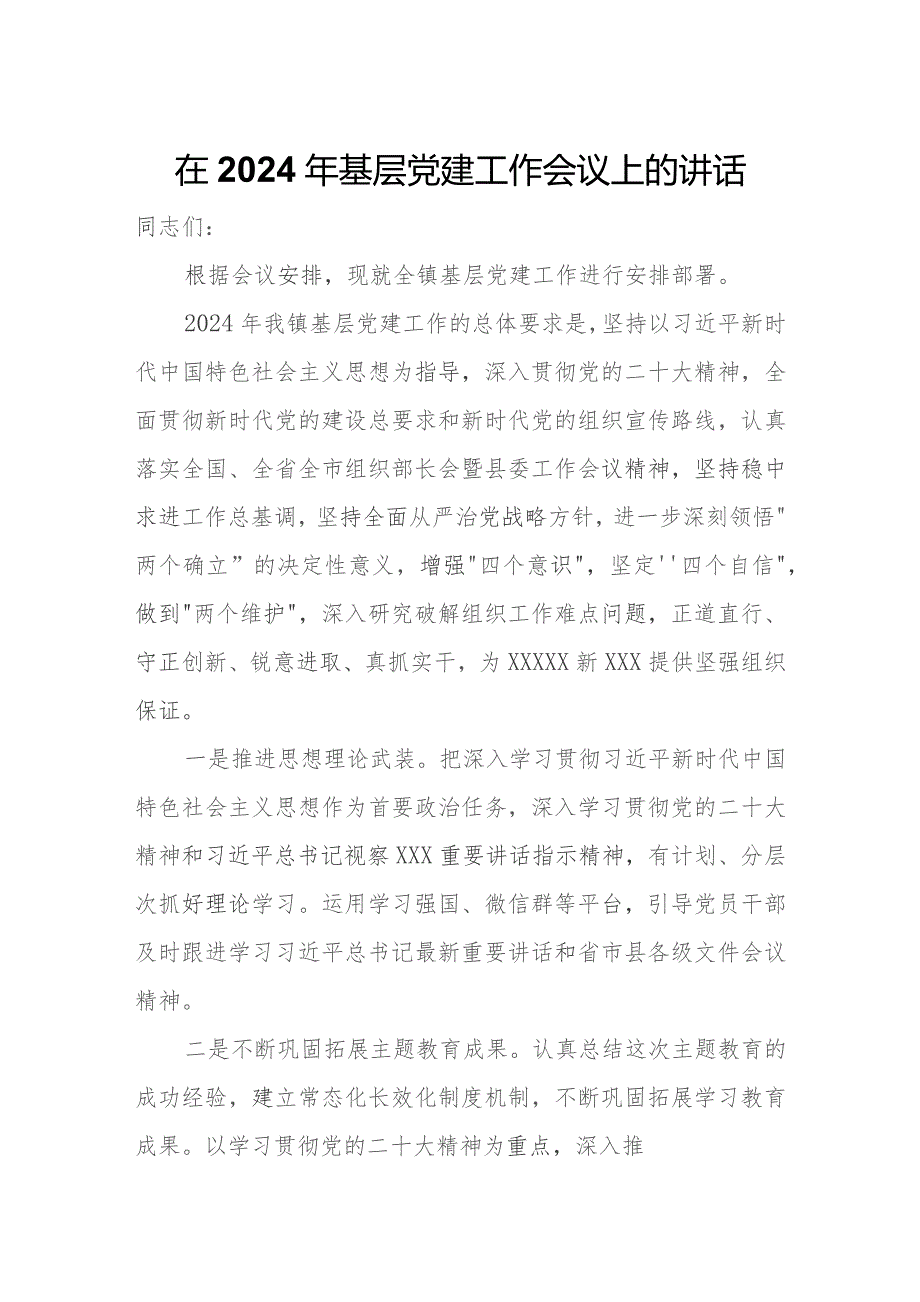 在 2024 年基层党建工作会议上的讲话
同志们：
根据会议安排，现就全镇基层党建工作进行安排部署。
2024 年我镇基层党建工作的总体要求是，坚持以习近平新时
代中国特色社会主义思想为指导，深入贯彻党的二十大精神，全
面贯彻新时代党的建设总要求和新时代党的组织宣传路线，认真
落实全国、全省全市组织部长会暨县委工作会议精神，坚持稳中
求进工作总基调，坚持全面从严治党战略方针，进一步深刻领悟"
两个确立”的决定性意义，增强"四个意识"，坚定''四个自信"，
做到"两个维护"，深入研究破解组织工作难点问题，正道直行、
守正创新、锐意进取、真抓实干，为 XXXXX 新 XXX 提供坚强组织
保证。
一是推进思想理论武装。把深入学习贯彻习近平新时代中国
特色社会主义思想作为首要政治任务，深入学习贯彻党的二十大
精神和习近平总书记视察 XXX 重要讲话指示精神，有计划、分层
次抓好理论学习。运用学习强国、微信群等平台，引导党员干部
及时跟进学习习近平总书记最新重要讲话和省市县各级文件会议
精神。
二是不断巩固拓展主题教育成果。认真总结这次主题教育的
成功经验，建立常态化长效化制度机制，不断巩固拓展学习教育
成果。以学习贯彻党的二十大精神为重点，深入推